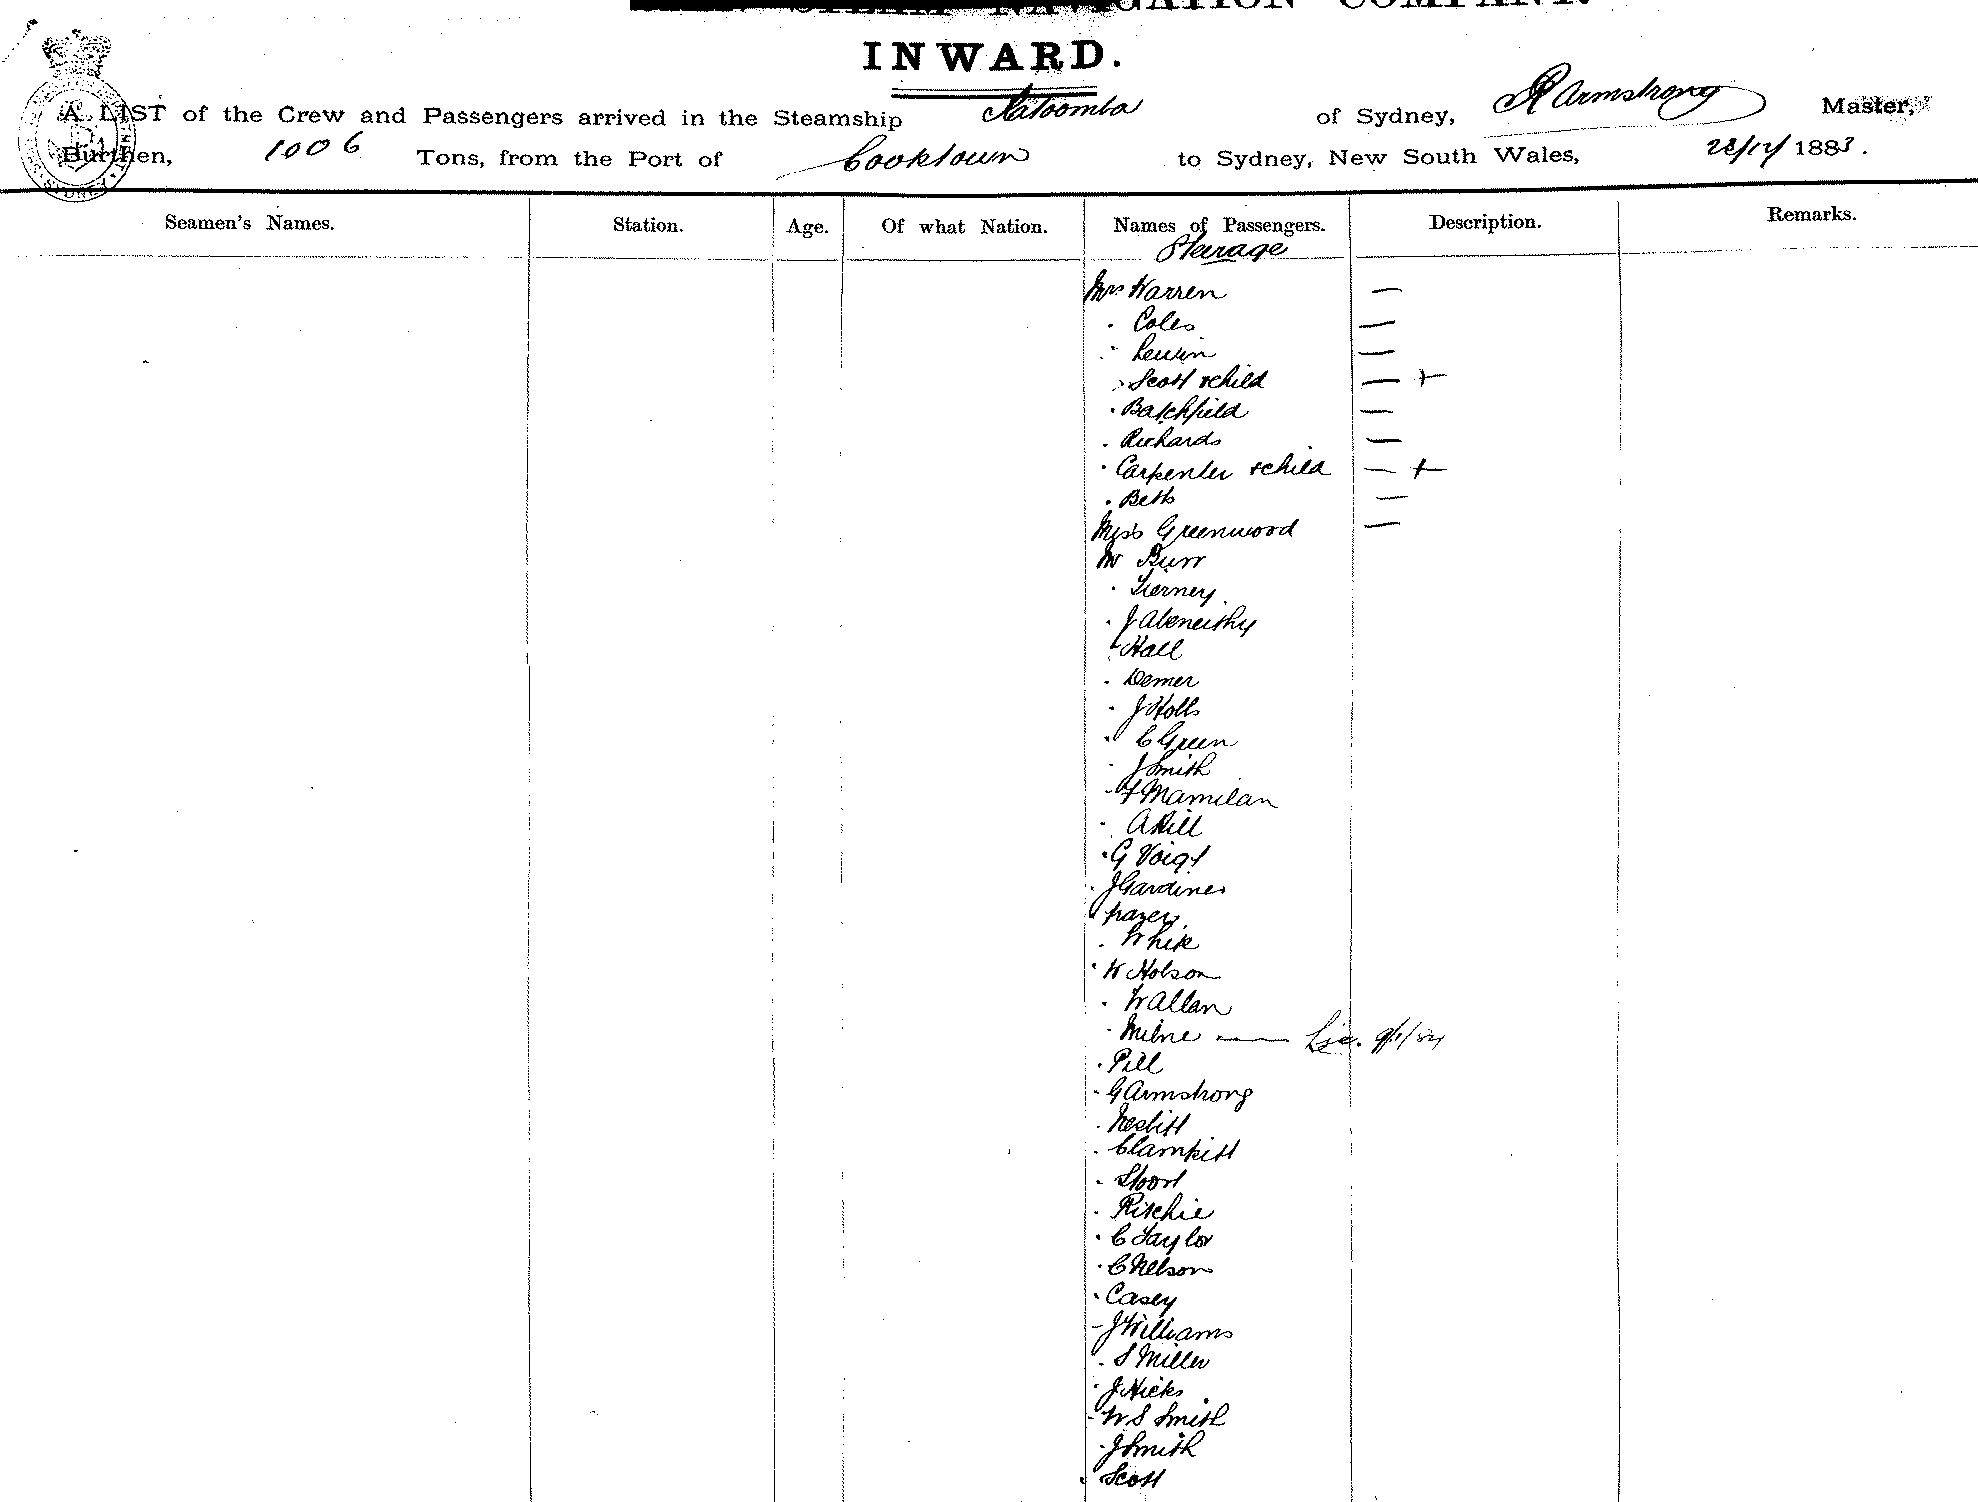 NAVIGATION COMPANY.
INWARD.
A LIST of the Crew and Passengers arrived in the Steamship Katoomba of Sydney, R Armstrong Master,
Burthen, 1006 Tons, from the Port of Cooktown to Sydney, New South Wales, 28/12/ 1883.
Seamen's Names. Station. Age. Of what Nation. Names of Passengers. Description. Remarks.
Steerage
Mrs Warren —
" Coles —
" Lewin —
" Scott & child — +
" Batchfield —
" Richards —
" Carpenter & child — +
" Betts —
Miss Greenwood —
Mr Burr
" Tierney
" J Abeneithy
" Hall
" Demer
" J Holls
" C Green
" J Smith
" F Mamilan
" A Hill
" G Voigt
" J Gardiner
" Frazer
" White
" W Hobson
" W Allan
" Milne
" Pill
" G Armstrong
" Nesbitt
" Clampitt
" Stoort
" Ritchie
" C Taylor
" C Nelson
" Casey
" J Williams
" S Miller
" J Hicks
" W S Smith
" J Smith
" Scott